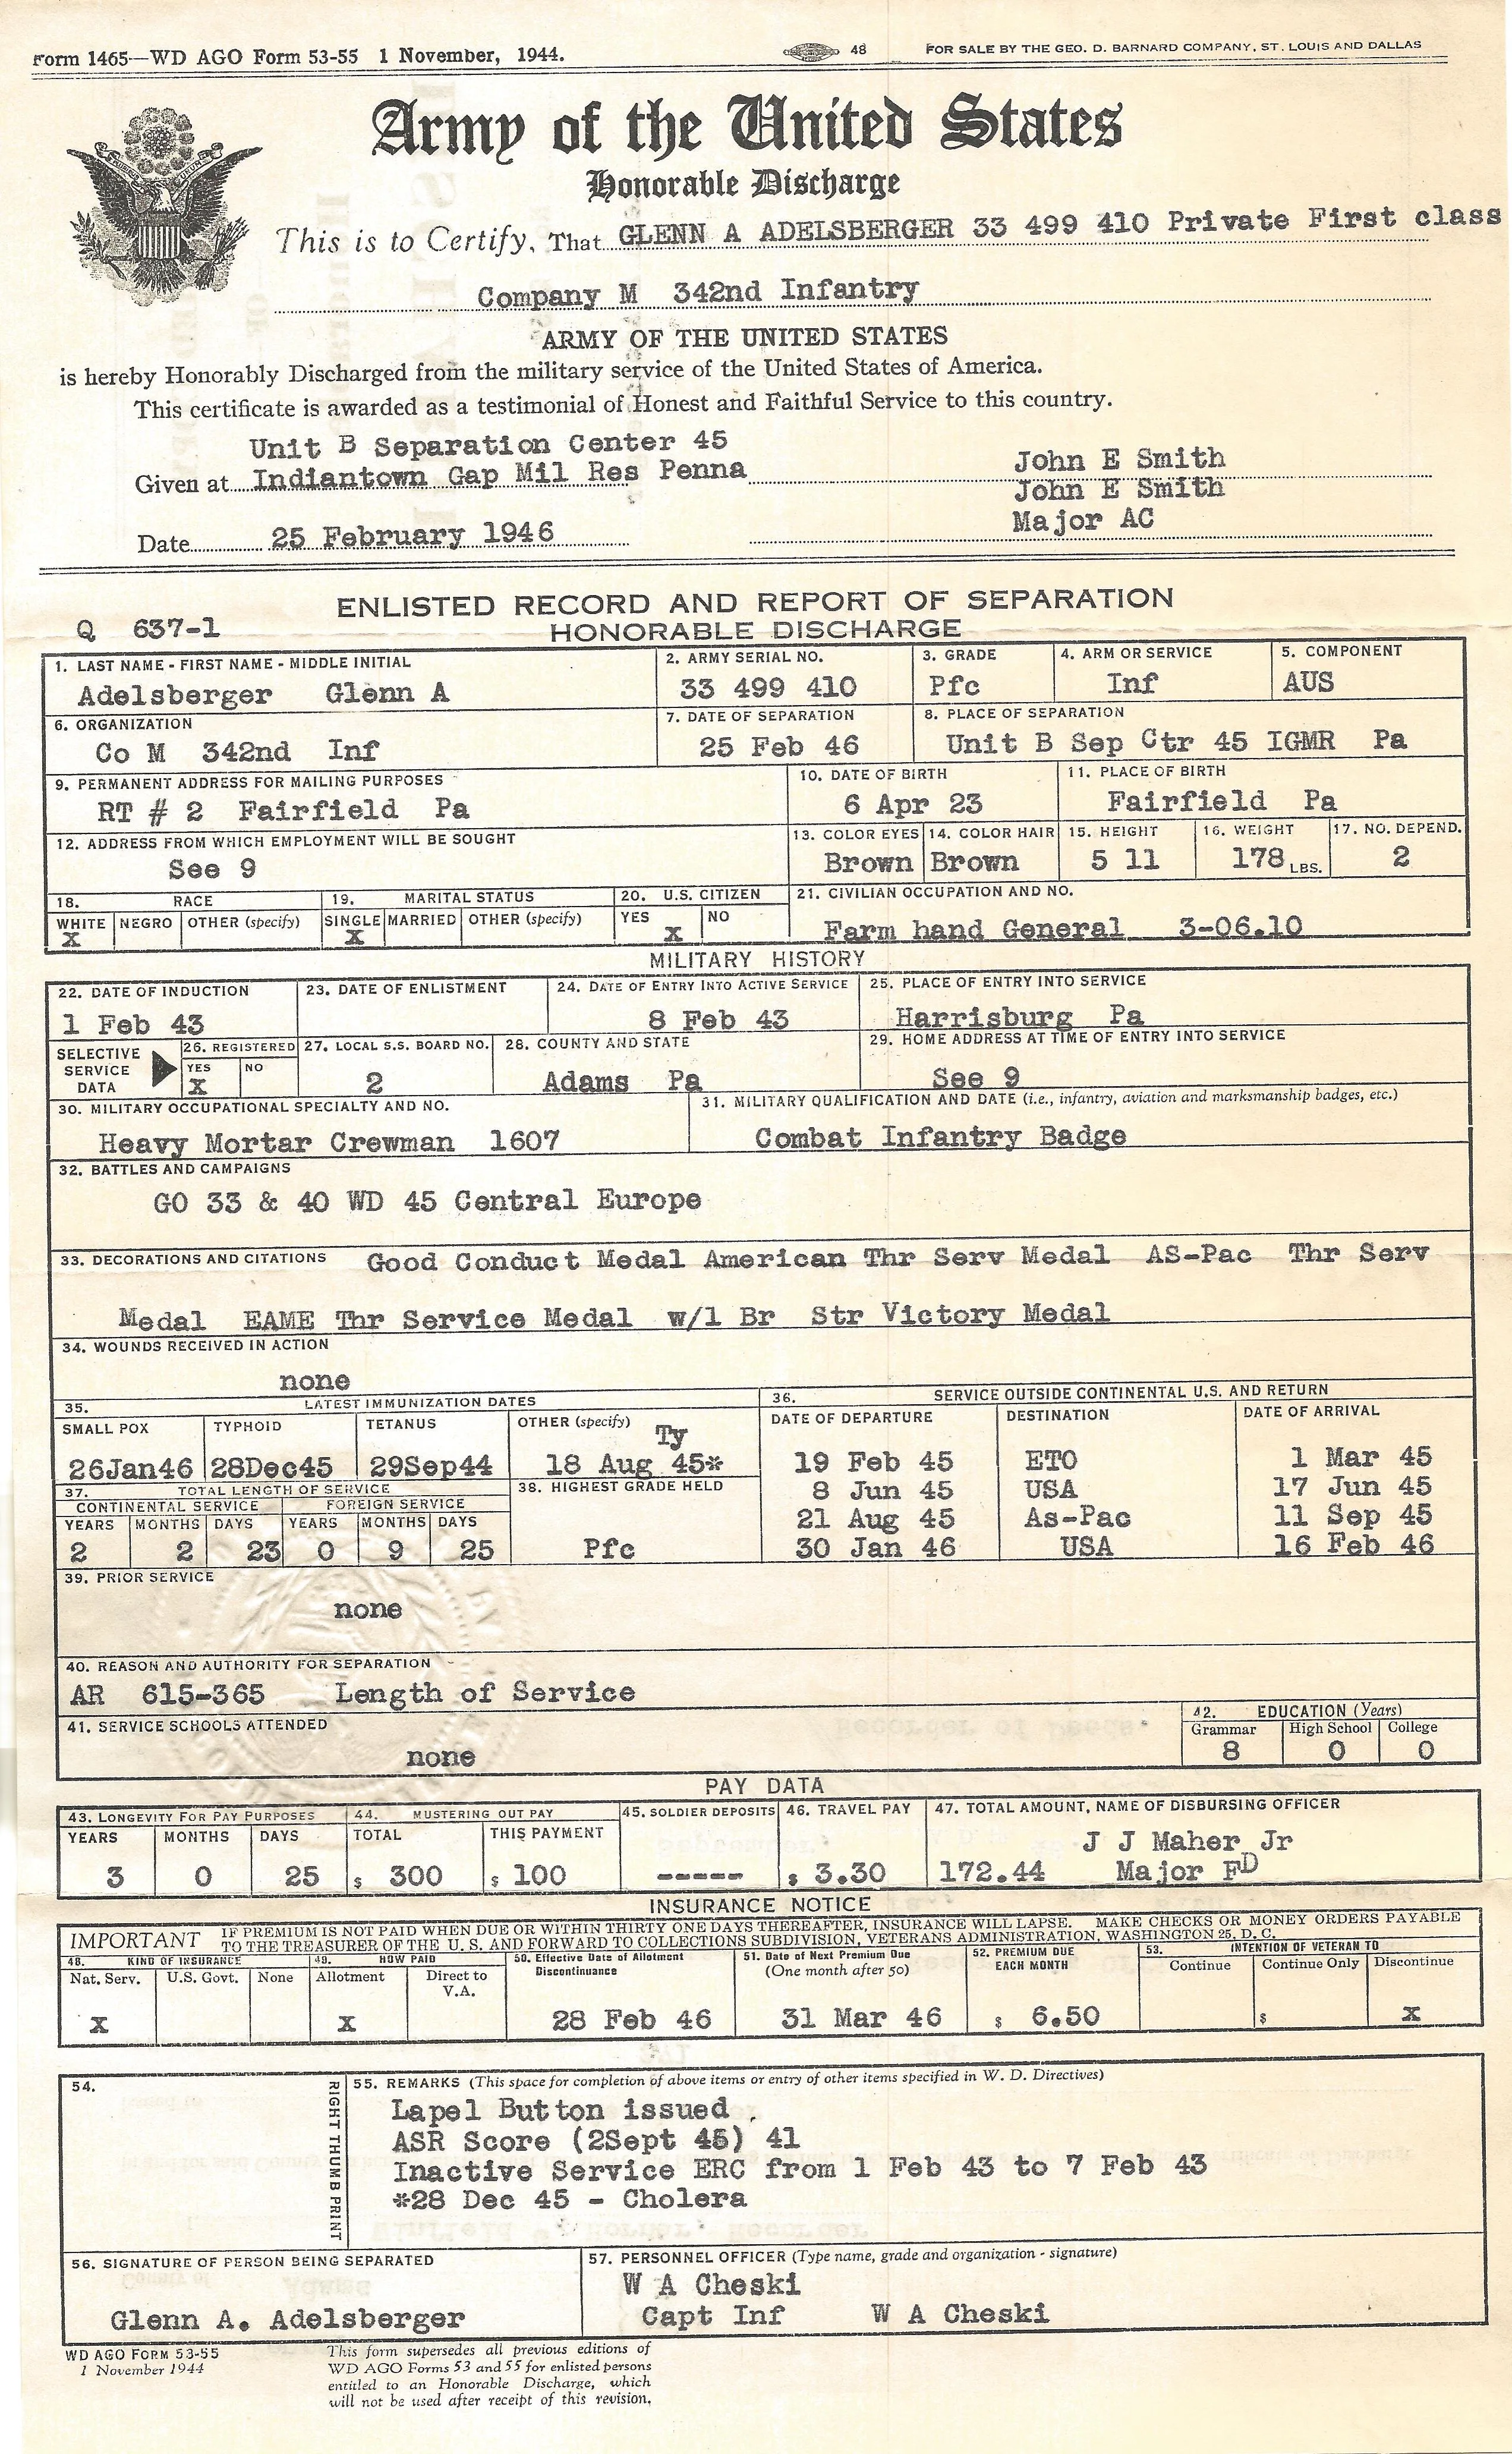 Form 1465—WD AGO Form 53-55 1 November, 1944. 48 FOR SALE BY THE GEO. D. BARNARD COMPANY, ST. LOUIS AND DALLAS
Army of the United States
Honorable Discharge
This is to Certify, That GLENN A ADELSBERGER 33 499 410 Private First class
Company M 342nd Infantry
ARMY OF THE UNITED STATES
is hereby Honorably Discharged from the military service of the United States of America.
This certificate is awarded as a testimonial of Honest and Faithful Service to this country.
Unit B Separation Center 45
Given at Indiantown Gap Mil Res Penna
John E Smith
John E Smith
Major AC
Date 25 February 1946
ENLISTED RECORD AND REPORT OF SEPARATION
Q 637-1 HONORABLE DISCHARGE
1. LAST NAME - FIRST NAME - MIDDLE INITIAL 2. ARMY SERIAL NO. 3. GRADE 4. ARM OR SERVICE 5. COMPONENT
Adelsberger Glenn A 33 499 410 Pfc Inf AUS
6. ORGANIZATION 7. DATE OF SEPARATION 8. PLACE OF SEPARATION
Co M 342nd Inf 25 Feb 46 Unit B Sep Ctr 45 IGMR Pa
9. PERMANENT ADDRESS FOR MAILING PURPOSES 10. DATE OF BIRTH 11. PLACE OF BIRTH
RT # 2 Fairfield Pa 6 Apr 23 Fairfield Pa
12. ADDRESS FROM WHICH EMPLOYMENT WILL BE SOUGHT 13. COLOR EYES 14. COLOR HAIR 15. HEIGHT 16. WEIGHT 17. NO. DEPEND.
See 9 Brown Brown 5 11 178 LBS. 2
18. RACE 19. MARITAL STATUS 20. U.S. CITIZEN 21. CIVILIAN OCCUPATION AND NO.
WHITE NEGRO OTHER (specify) SINGLE MARRIED OTHER (specify) YES NO
X X X Farm hand General 3-06.10
MILITARY HISTORY
22. DATE OF INDUCTION 23. DATE OF ENLISTMENT 24. DATE OF ENTRY INTO ACTIVE SERVICE 25. PLACE OF ENTRY INTO SERVICE
1 Feb 43 8 Feb 43 Harrisburg Pa
SELECTIVE SERVICE DATA 26. REGISTERED 27. LOCAL S.S. BOARD NO. 28. COUNTY AND STATE 29. HOME ADDRESS AT TIME OF ENTRY INTO SERVICE
YES NO
X 2 Adams Pa See 9
30. MILITARY OCCUPATIONAL SPECIALTY AND NO. 31. MILITARY QUALIFICATION AND DATE (i.e., infantry, aviation and marksmanship badges, etc.)
Heavy Mortar Crewman 1607 Combat Infantry Badge
32. BATTLES AND CAMPAIGNS
GO 33 & 40 WD 45 Central Europe
33. DECORATIONS AND CITATIONS Good Conduct Medal American Thr Serv Medal AS-Pac Thr Serv
Medal EAME Thr Service Medal w/1 Br Str Victory Medal
34. WOUNDS RECEIVED IN ACTION
none
35. LATEST IMMUNIZATION DATES 36. SERVICE OUTSIDE CONTINENTAL U.S. AND RETURN
SMALL POX TYPHOID TETANUS OTHER (specify) DATE OF DEPARTURE DESTINATION DATE OF ARRIVAL
Ty
26Jan46 28Dec45 29Sep44 18 Aug 45* 19 Feb 45 ETO 1 Mar 45
37. TOTAL LENGTH OF SERVICE 38. HIGHEST GRADE HELD 8 Jun 45 USA 17 Jun 45
CONTINENTAL SERVICE FOREIGN SERVICE
YEARS MONTHS DAYS YEARS MONTHS DAYS 21 Aug 45 As-Pac 11 Sep 45
2 2 23 0 9 25 Pfc 30 Jan 46 USA 16 Feb 46
39. PRIOR SERVICE
none
40. REASON AND AUTHORITY FOR SEPARATION
AR 615-365 Length of Service
41. SERVICE SCHOOLS ATTENDED 42. EDUCATION (Years)
Grammar High School College
none 8 0 0
PAY DATA
43. LONGEVITY FOR PAY PURPOSES 44. MUSTERING OUT PAY 45. SOLDIER DEPOSITS 46. TRAVEL PAY 47. TOTAL AMOUNT, NAME OF DISBURSING OFFICER
YEARS MONTHS DAYS TOTAL THIS PAYMENT J J Maher Jr
3 0 25 $ 300 $ 100 ----- $ 3.30 172.44 Major FD
INSURANCE NOTICE
IMPORTANT IF PREMIUM IS NOT PAID WHEN DUE OR WITHIN THIRTY ONE DAYS THEREAFTER, INSURANCE WILL LAPSE. MAKE CHECKS OR MONEY ORDERS PAYABLE
TO THE TREASURER OF THE U. S. AND FORWARD TO COLLECTIONS SUBDIVISION, VETERANS ADMINISTRATION, WASHINGTON 25, D. C.
48. KIND OF INSURANCE 49. HOW PAID 50. Effective Date of Allotment Discontinuance 51. Date of Next Premium Due (One month after 50) 52. PREMIUM DUE EACH MONTH 53. INTENTION OF VETERAN TO
Nat. Serv. U.S. Govt. None Allotment Direct to V.A. Continue Continue Only Discontinue
X X 28 Feb 46 31 Mar 46 $ 6.50 $ X
54. RIGHT THUMB PRINT
55. REMARKS (This space for completion of above items or entry of other items specified in W. D. Directives)
Lapel Button issued
ASR Score (2Sept 45) 41
Inactive Service ERC from 1 Feb 43 to 7 Feb 43
*28 Dec 45 - Cholera
56. SIGNATURE OF PERSON BEING SEPARATED 57. PERSONNEL OFFICER (Type name, grade and organization - signature)
W A Cheski
Glenn A. Adelsberger Capt Inf W A Cheski
WD AGO FORM 53-55
1 November 1944
This form supersedes all previous editions of
WD AGO Forms 53 and 55 for enlisted persons
entitled to an Honorable Discharge, which
will not be used after receipt of this revision.